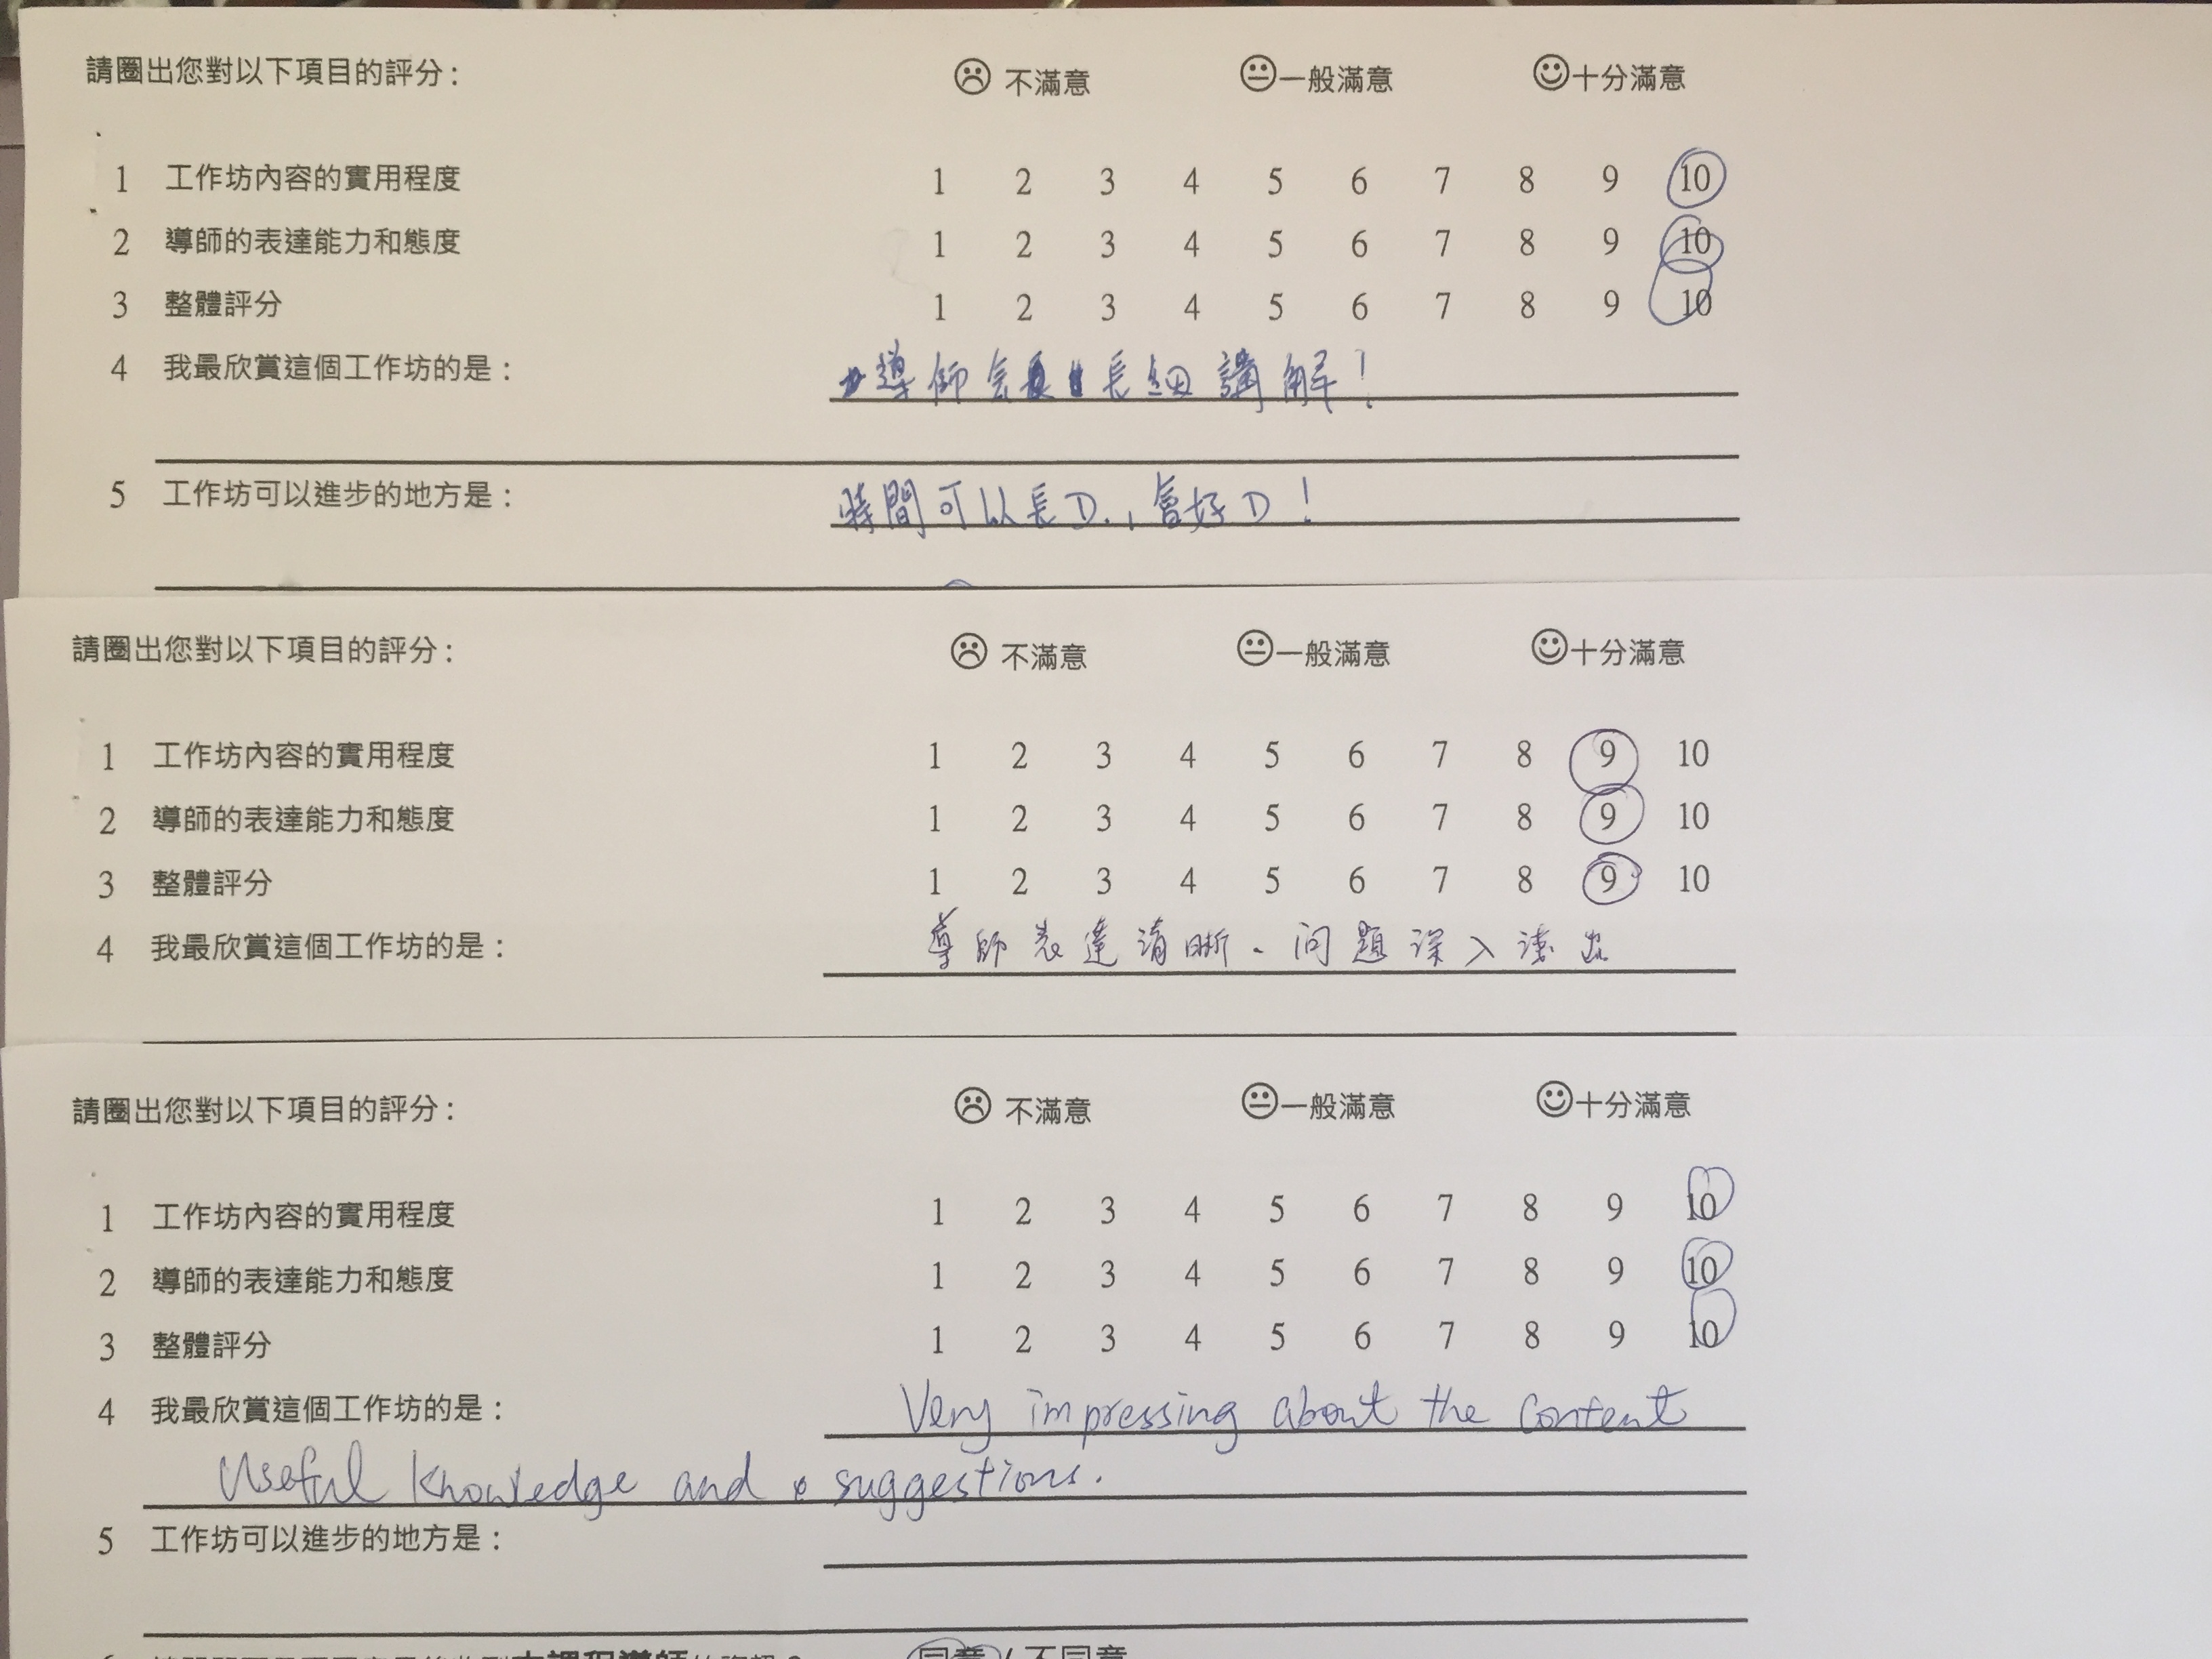 請圈出您對以下項目的評分： ☹ 不滿意 😐一般滿意 ☺十分滿意
1 工作坊內容的實用程度 1 2 3 4 5 6 7 8 9 10
2 導師的表達能力和態度 1 2 3 4 5 6 7 8 9 10
3 整體評分 1 2 3 4 5 6 7 8 9 10
4 我最欣賞這個工作坊的是： 導師会長細講解！
5 工作坊可以進步的地方是： 時間可以長D.，會好D！
請圈出您對以下項目的評分： ☹ 不滿意 😐一般滿意 ☺十分滿意
1 工作坊內容的實用程度 1 2 3 4 5 6 7 8 9 10
2 導師的表達能力和態度 1 2 3 4 5 6 7 8 9 10
3 整體評分 1 2 3 4 5 6 7 8 9 10
4 我最欣賞這個工作坊的是： 導師表達清晰、問題深入淺出
請圈出您對以下項目的評分： ☹ 不滿意 😐一般滿意 ☺十分滿意
1 工作坊內容的實用程度 1 2 3 4 5 6 7 8 9 10
2 導師的表達能力和態度 1 2 3 4 5 6 7 8 9 10
3 整體評分 1 2 3 4 5 6 7 8 9 10
4 我最欣賞這個工作坊的是： Very impressing about the content
Useful knowledge and suggestions.
5 工作坊可以進步的地方是：
本課程導師 同意 / 不同意